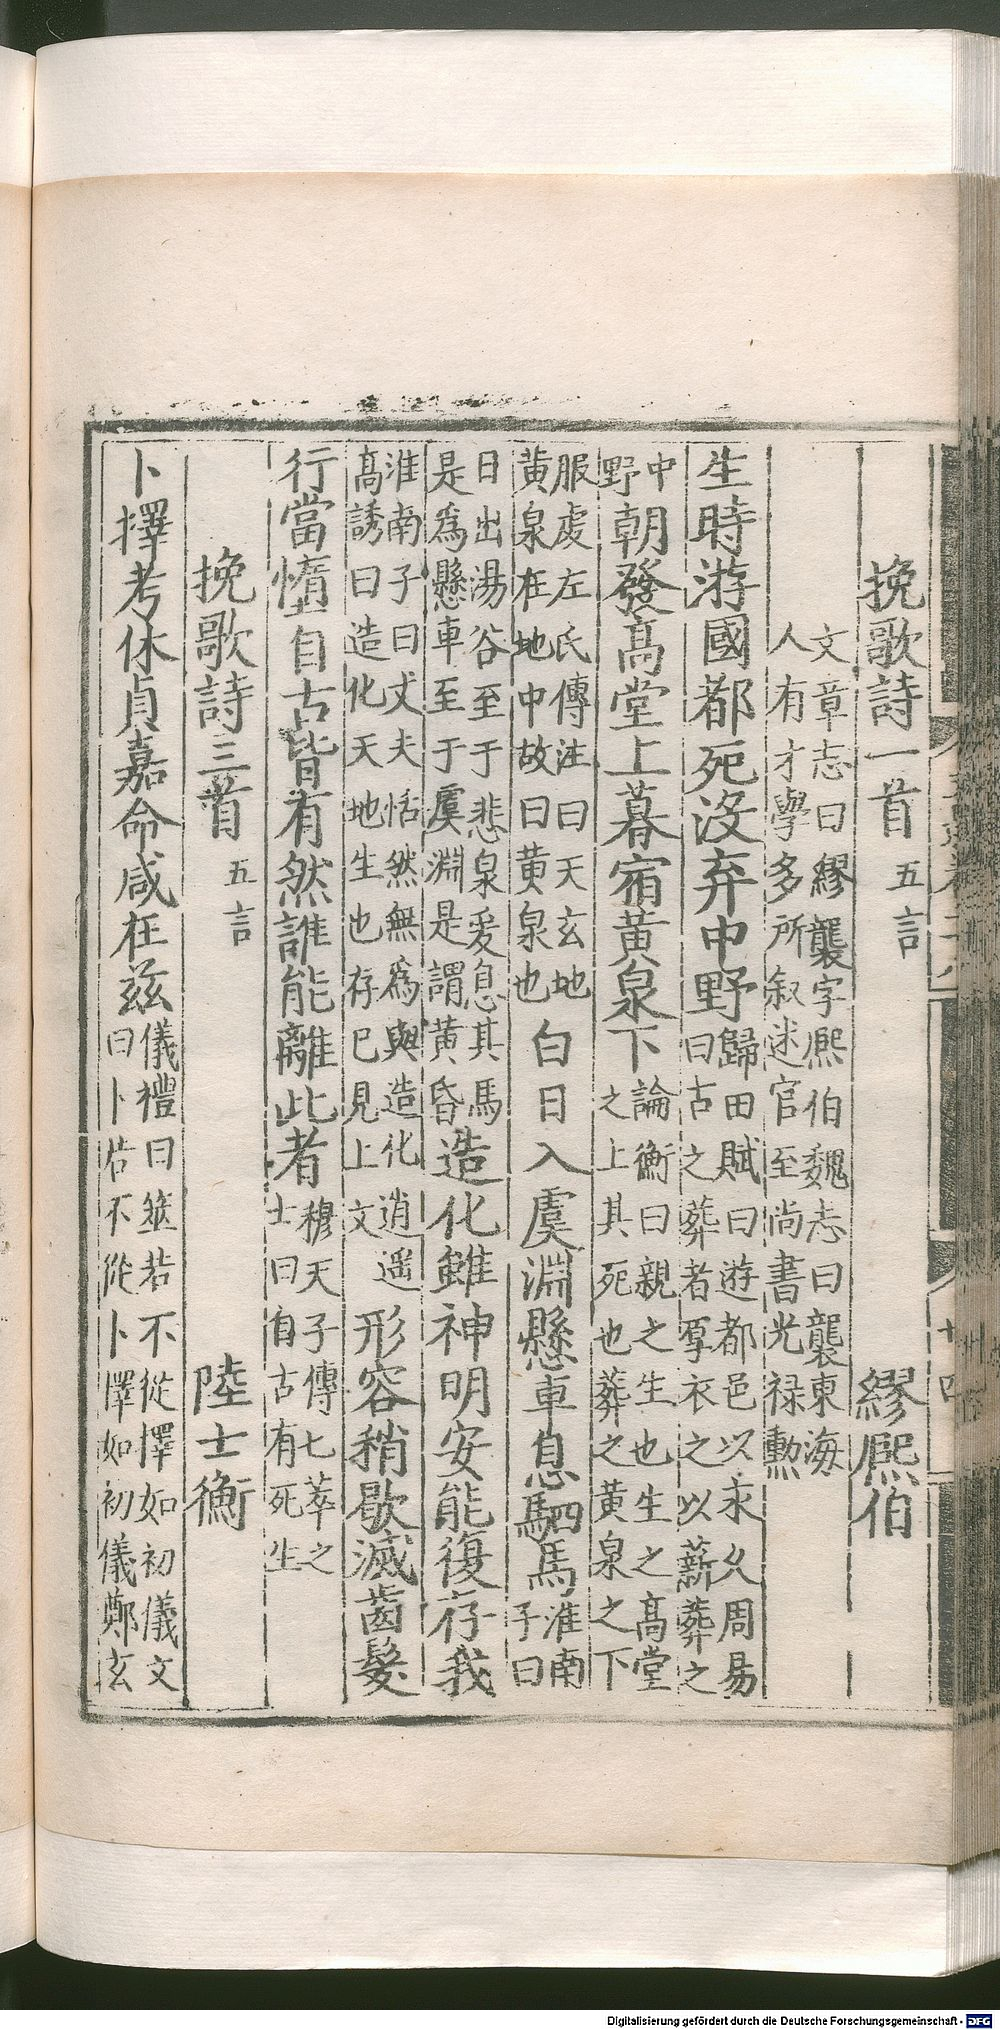 挽歌詩一首 五言 繆熙伯
文章志曰繆襲字熙伯魏志曰襲東海
人有才學多所叙述官至尚書光禄勲
生時游國都死没弃中野
歸田賦曰遊都邑以永久周易
曰古之葬者厚衣之以薪葬之
中野
朝發高堂上暮宿黄泉下
論衡曰親之生也生之高堂
之上其死也葬之黄泉之下
服虔左氏傳注曰天玄地
黄泉在地中故曰黄泉也
白日入虞淵懸車息駟馬
淮南
子曰
日出湯谷至于悲泉爰息其馬
是為懸車至于虞淵是謂黄昏
造化雖神明安能復存我
淮南子曰丈夫恬然無為與造化逍遥
高誘曰造化天地生也存已見上文
形容稍歇滅齒髮
行當墮自古皆有然誰能離此者
穆天子傳七萃之
士曰自古有死生
挽歌詩三首 五言 陸士衡
卜擇考休貞嘉命咸在兹
儀禮曰筮若不從擇如初儀又
曰卜若不從卜擇如初儀鄭玄
Digitalisierung gefördert durch die Deutsche Forschungsgemeinschaft - DFG